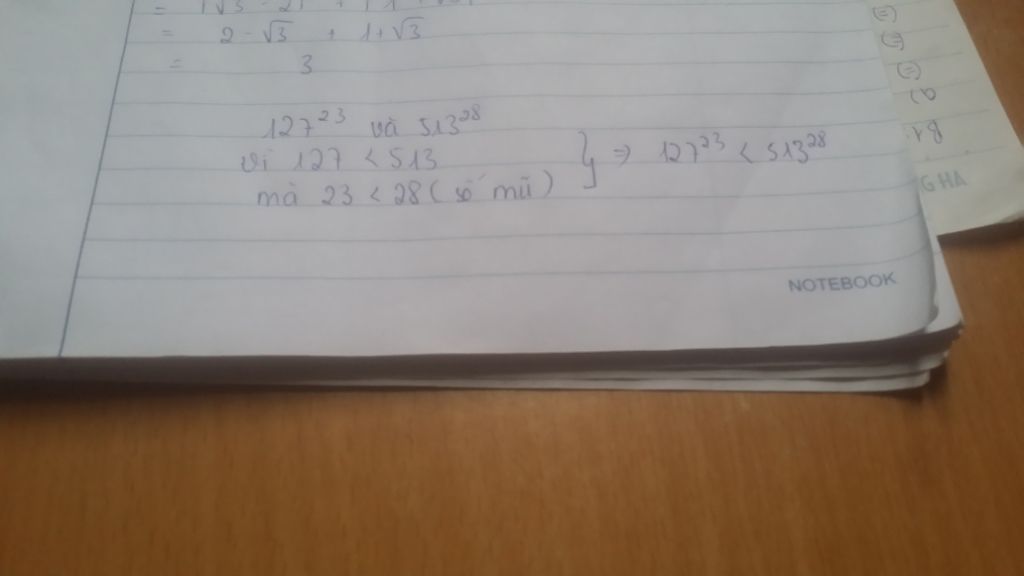 = |√3 - 2| +
= 2 - √3 + 1 + √3
= 3
127²³ và 513²⁸
vì 127 < 513
mà 23 < 28 ( số mũ )
} ⇒ 127²³ < 513²⁸
NOTEBOOK
G HA